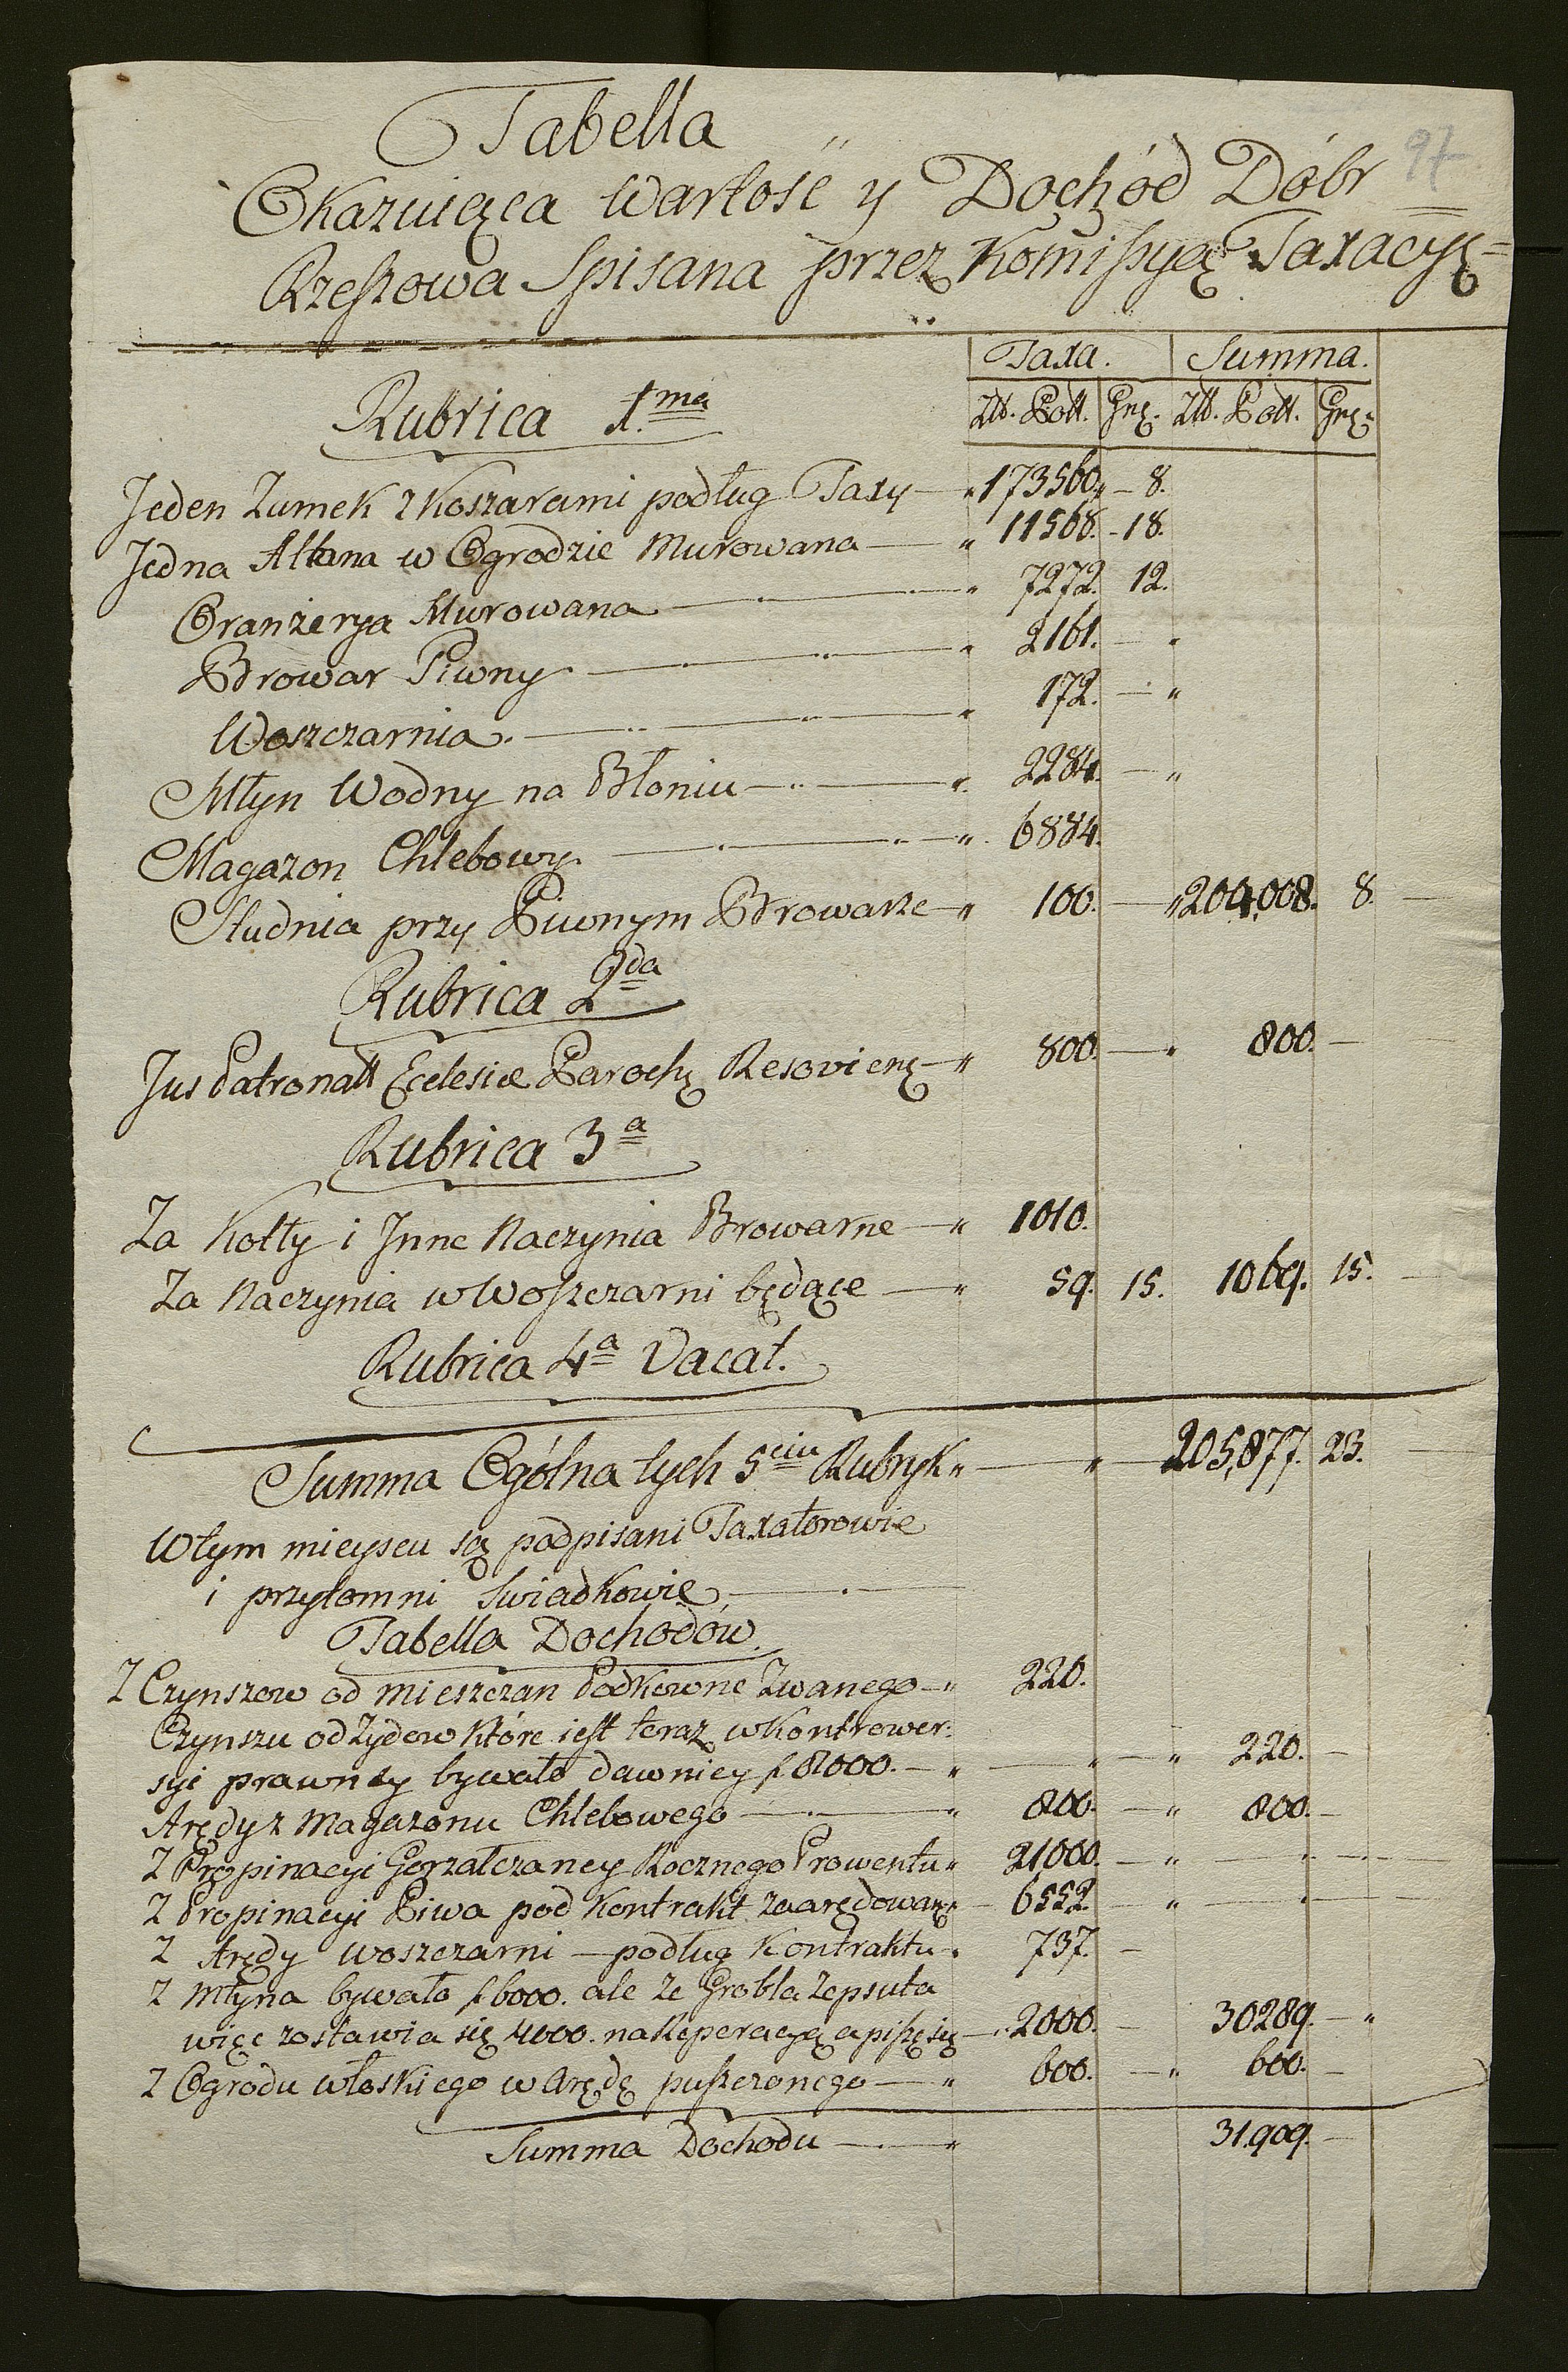 Tabella
Okazuiąca Wartość y Dochód Dóbr
97
Rzeszowa Spisana przez Kommissyą Taxacyę=
Taxa. Summa.
Złł. Poll. Grę. Złł. Poll. Grę.
Rubrica 1.ma
Jeden Zamek z Koszarami podług Taxy — 173560. — 8.
Jedna Altana w Ogrodzie Murowana — 11568. - 18.
Oranżerya Murowana — 7272. 12.
Browar Piwny — 2161. —
Woszczarnia. — 172. —
Młyn Wodny na Błoniu — 2284. —
Magazon Chlebowy. — 6884.
Studnia przy Piwnym Browarze — 100. — 204,008. 8.
Rubrica 2da
Jus Patronatt Eclesiæ Parochę Resovienę — 800. — 800. —
Rubrica 3a
Za Kotły i Jnne Naczynia Browarne — 1010.
Za Naczynia w Woszczarni będące — 59. 15. 1069. 15.
Rubrica 4a Vacat.
Summa Ogólna tych 5ciu Rubryk — 205,877. 23.
W tym mieyscu są podpisani Taxatorowie
i przytomni Swiadkowie, —
Tabella Dochodów.
Z Czynszow od Mieszczan Podkowne Zwanego — 220.
Czynszu od Zydow które iest teraz w Kontrower.
syi prawney bywało dawniey f 8000. — 220. —
Arędy z Magazonu Chlebowego — 800. — 800. —
Z Propinacyi Gorzałczaney Rocznego Prowentu 21000. —
Z Propinacyi Piwa pod Kontrakt zaarędowanę — 6552. —
Z Arędy woszczarni — podług Kontraktu 737. —
Z Młyna bywało f 6000. ale że Grobla zepsuta
więc zostawia się 4000. na Reperacyę a pisze się — 2000. — 30289. —
Z Ogrodu włoskiego w Arędę puszczonego — 600. — 600. —
Summa Dochodu — 31,909. —